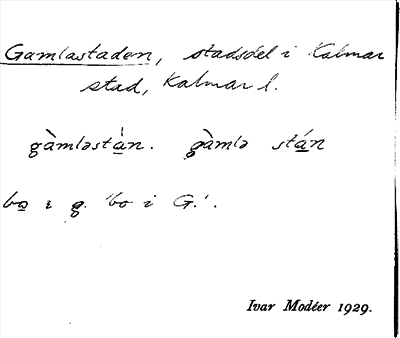 Gamlastaden, stadsdel i Kalmar
stad, Kalmar l.
gàmləstà̱n. gàmlə stá̱n
bo̱ ı g. 'bo i G.'.
Ivar Modéer 1929.